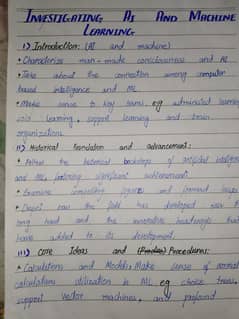 INVESTIGATING AI AND MACHINE
LEARNING
I) Introduction: (AI and machine)
• Characterize man-made consciousness and AI
• Take about the connection among computer
based intelligence and ML
• Make sense to key terms, eg administed learning
learning, support learning and brain
organizations
II) Historical foundation and advancement:
• the historical backdrop of artificial intelligence
and ML, featuring significant achievement
• Examine compelling figures and forward leaps
• how the field has developed over
long haul and the innovative headways that
have added to its development.
III) Core Ideas and Procedures:
• Calculations and Models, Make sense of normal
calculations utilization in ML eg choice trees,
support vector machines, and profound